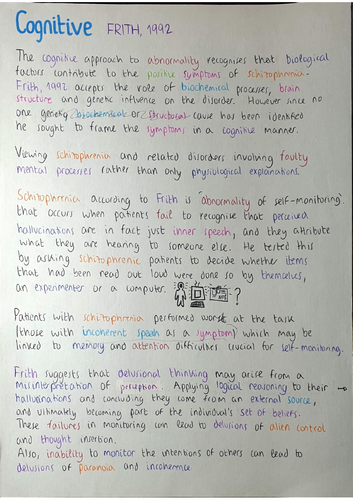 Cognitive FRITH, 1992
The cognitive approach to abnormality recognises that biological
factors contribute to the positive symptoms of schizophrenia.
Frith, 1992 accepts the role of biochemical processes, brain
structure and genetic influence on the disorder. However since no
one genetic/biochemical or structural cause has been identified
he sought to frame the symptoms in a cognitive manner.
Viewing schizophrenia and related disorders involving faulty
mental processes rather than only physiological explanations.
Schizophrenia according to Frith is "abnormality of self-monitoring"
that occurs when patients fail to recognise that perceived
hallucinations are in fact just inner speech, and they attribute
what they are hearing to someone else. He tested this
by asking schizophrenic patients to decide whether items
that had been read out loud were done so by themselves,
an experimenter or a computer. ?
Patients with schizophrenia performed worst at the task
(those with incoherent speech as a symptom) which may be
linked to memory and attention difficulties crucial for self-monitoring.
Frith suggests that delusional thinking may arise from a
misinterpretation of perception. Applying logical reasoning to their →
hallucinations and concluding they come from an external source,
and ultimately becoming part of the individual's set of beliefs.
These failures in monitoring can lead to delusions of alien control
and thought insertion.
Also, inability to monitor the intentions of others can lead to
delusions of paranoia and incoherence